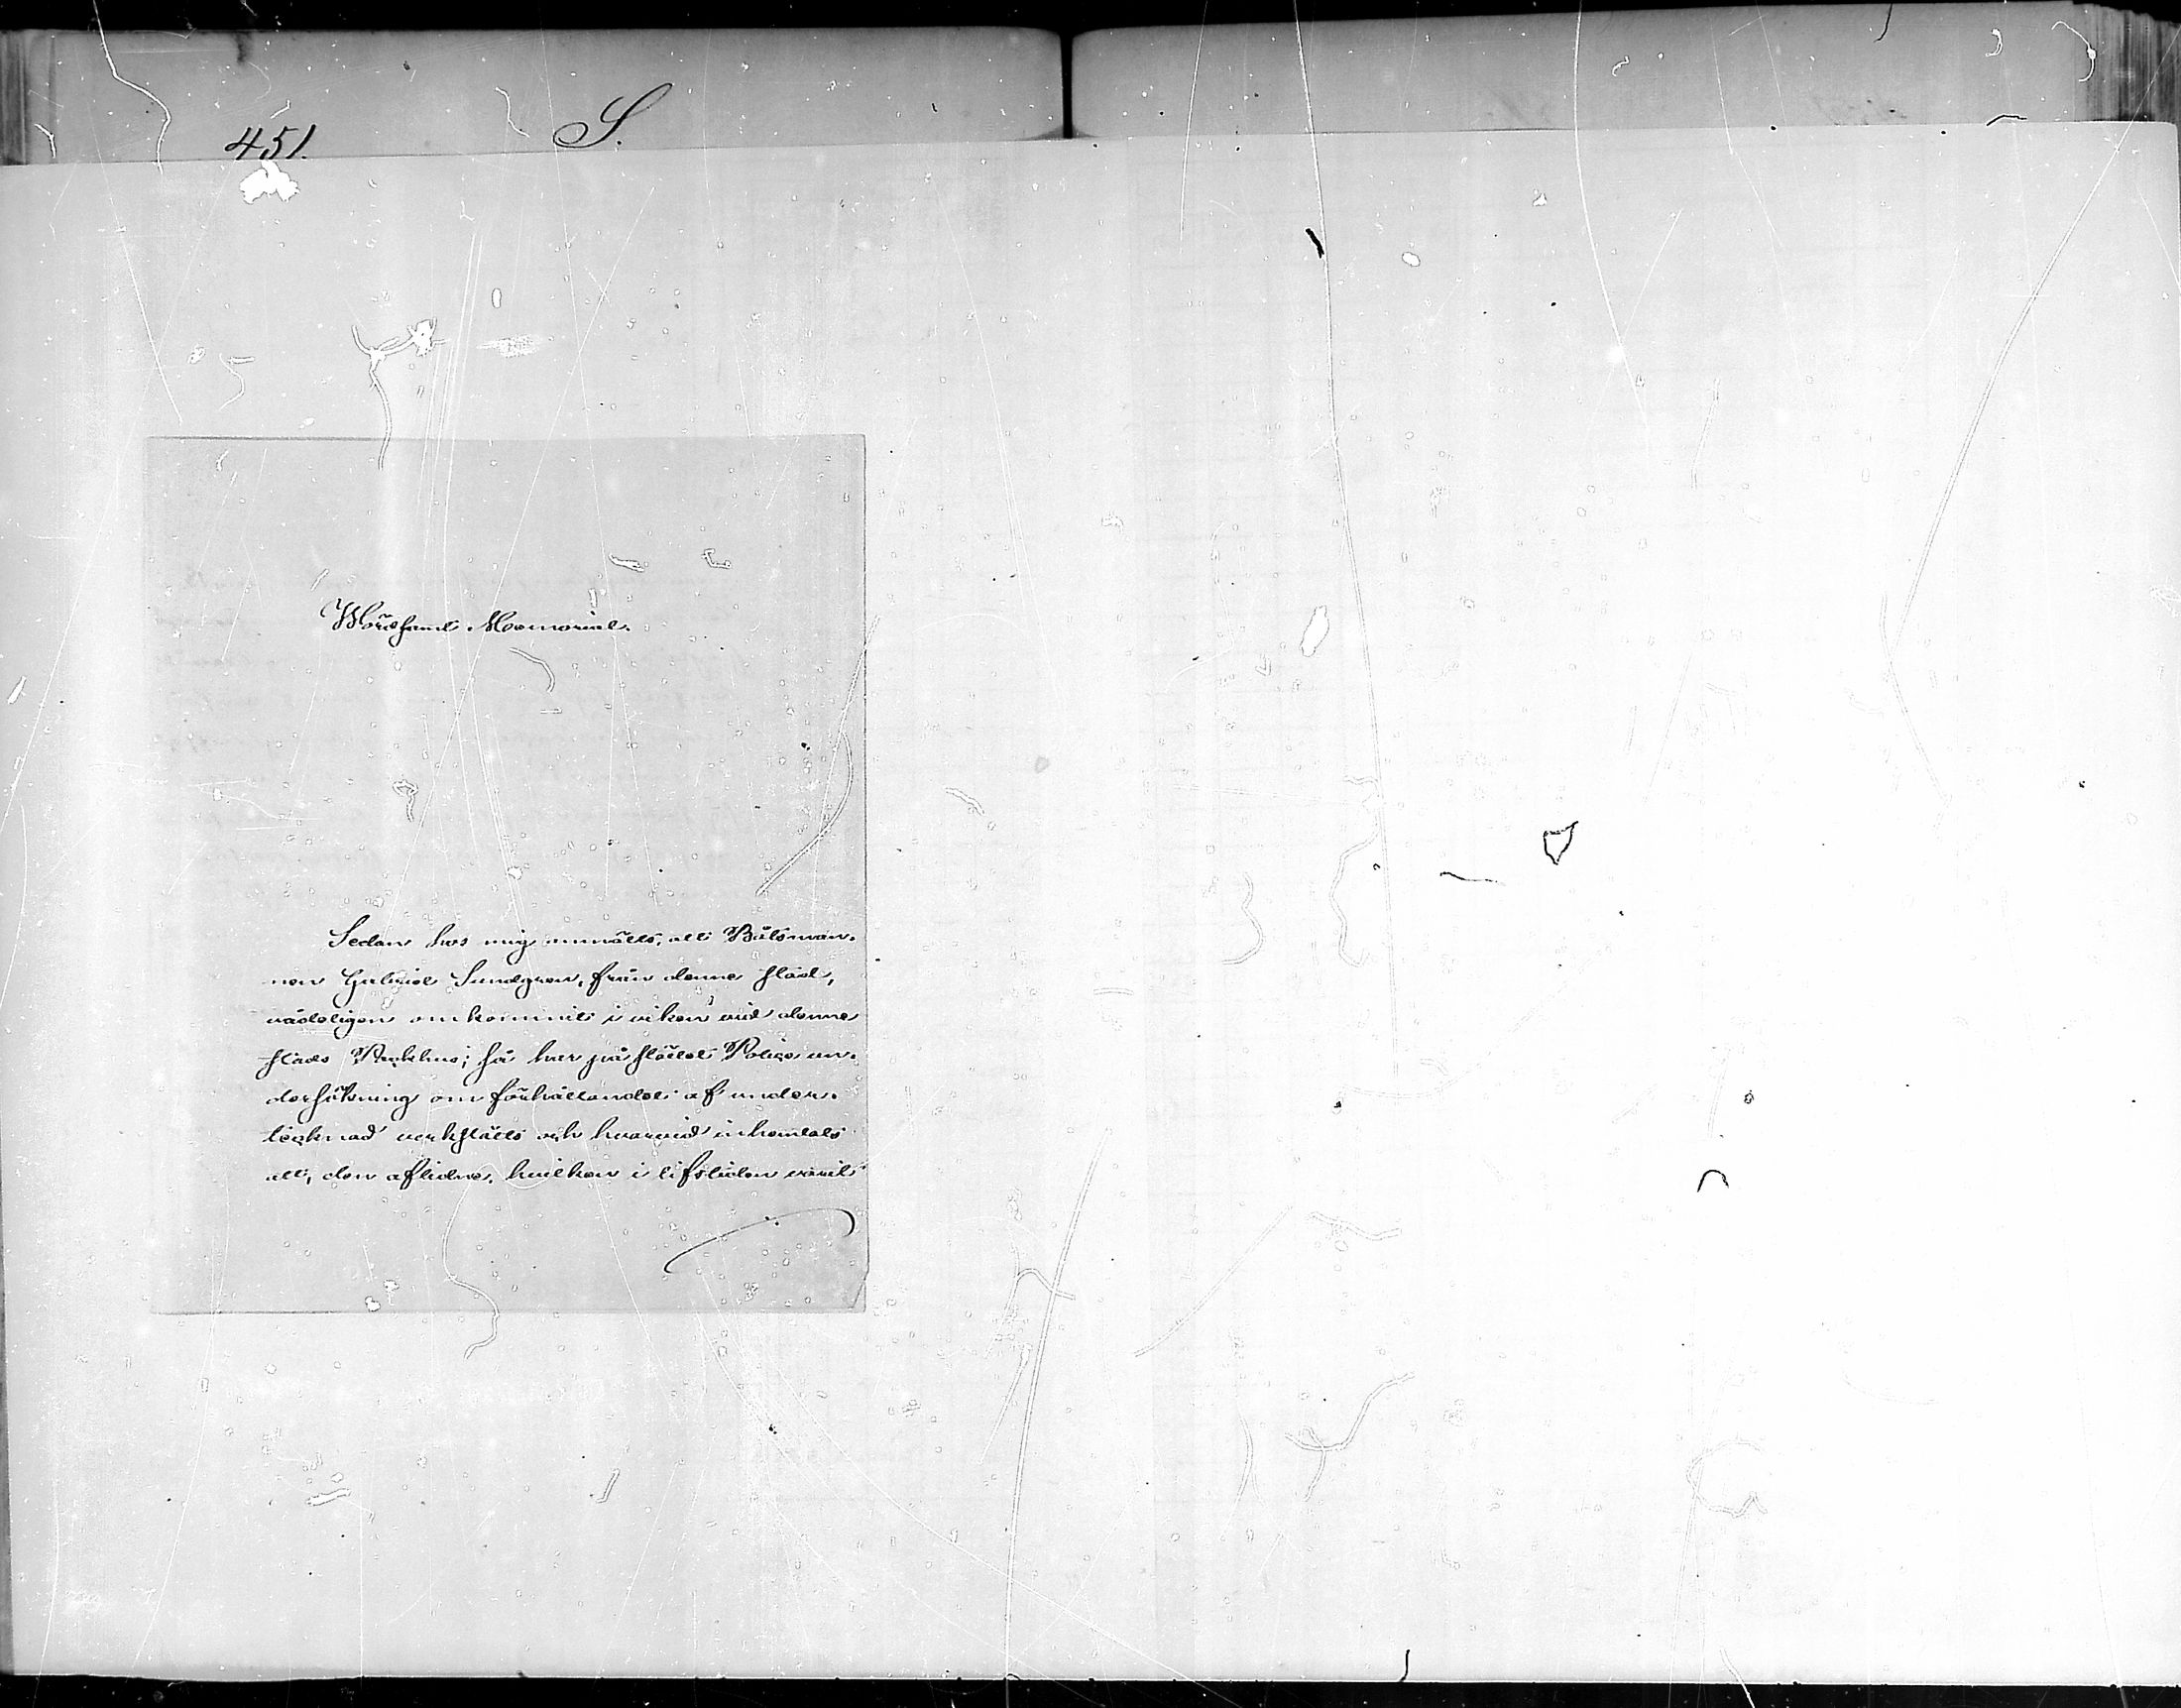 451. S.
Wördsamt Memorial.
Sedan hos mig anmälts, att Båtsman-
nen Gabriel Sundgren, från denne stad,
vådeligen omkommit i viken vid denne
stads Packhus; så har på stället Polise un-
dersökning om förhållandet af under-
tecknad verkstälts och hvarvid inhemtats
att, den aflidne, hvilken i lifstiden varit